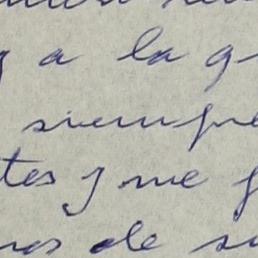 y a la g
siempre
tes y me f
nos de su